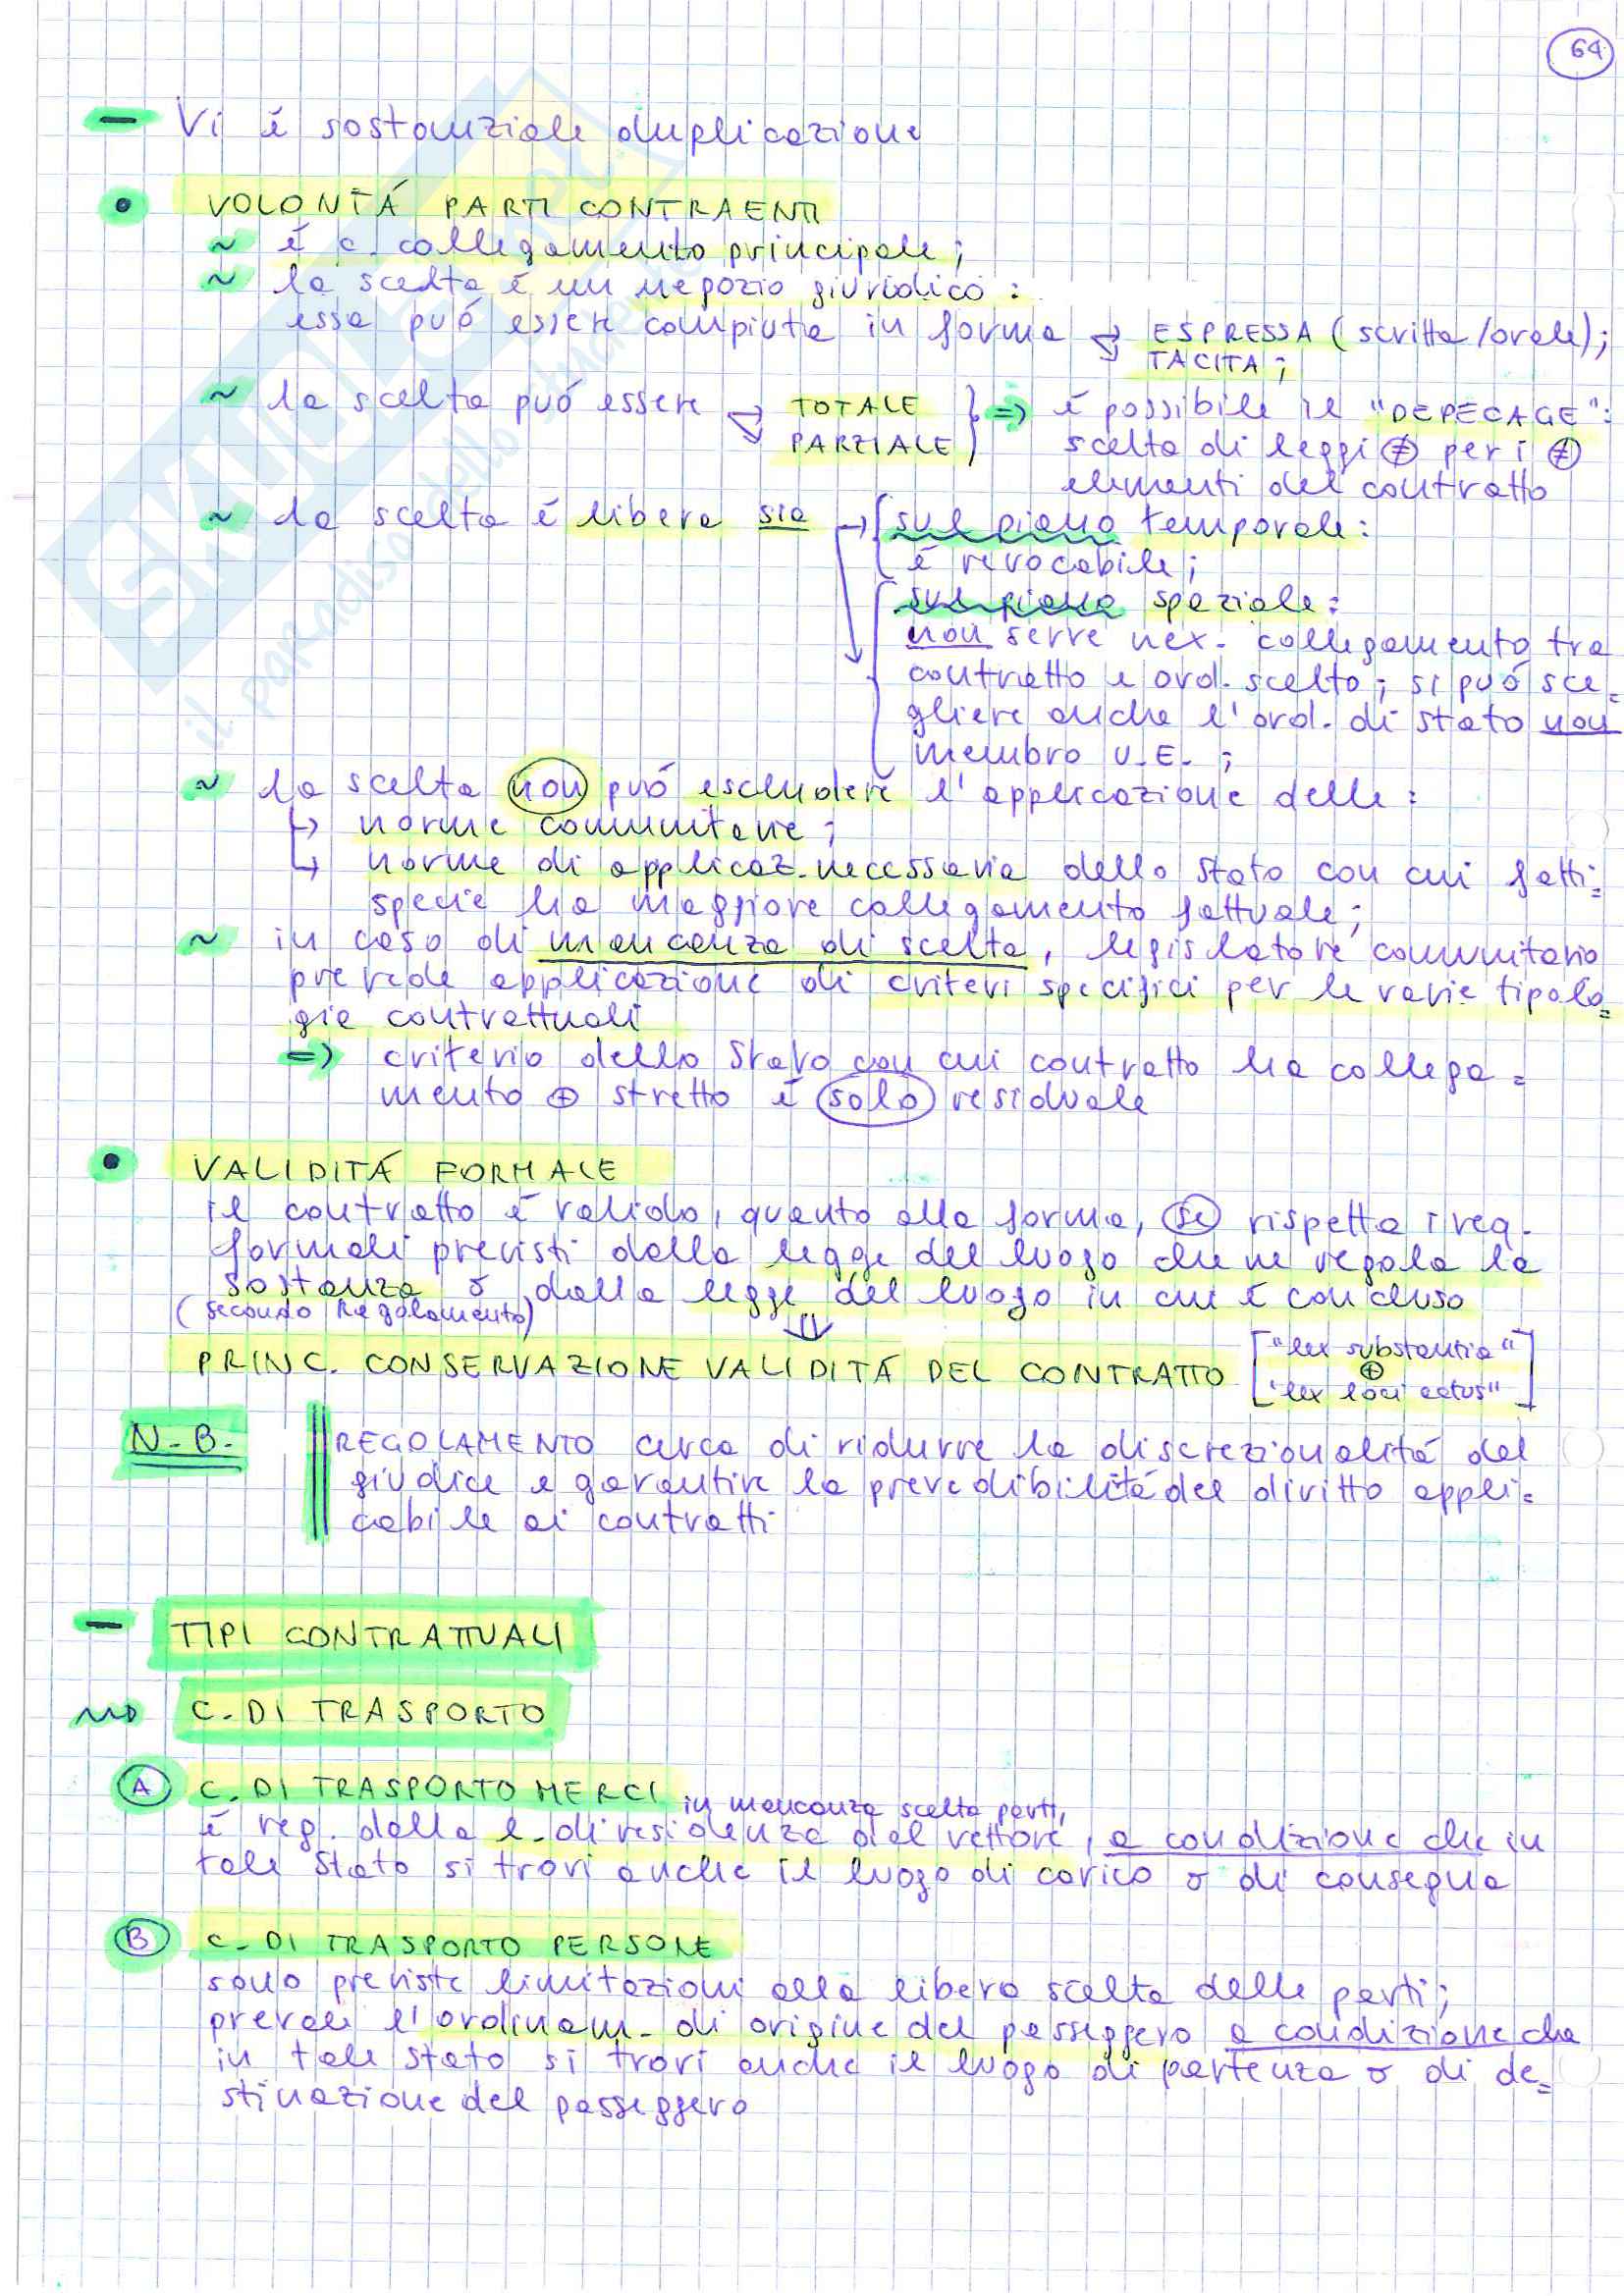 64
– Vi é sostanziale duplicazione
• VOLONTÁ PARTI CONTRAENTI
~ é c. collegamento principale;
~ la scelta é un negozio giuridico:
essa puó essere compiuta in forma → ESPRESSA (scritta/orale);
TACITA;
~ la scelta puó essere → TOTALE } => é possibile il "DEPECAGE":
PARZIALE scelta di leggi ≠ per i ≠
elementi del contratto
~ la scelta é libera sia → sul piano temporale:
é revocabile;
sul piano speziale:
non serve nex. collegamento tra
contratto e ord. scelto; si puó sce=
gliere anche l'ord. di stato non
membro U.E.;
~ la scelta non puó escludere l'applicazione delle:
↳ norme comunitarie;
↳ norme di applicaz. necessaria dello stato con cui fatti=
specie ha maggiore collegamento fattuale;
~ in caso di mancanza di scelta, legislatore comunitario
prevede applicazione di criteri specifici per le varie tipolo=
gie contrattuali
=> criterio dello Stato con cui contratto ha collega=
mento ⊕ stretto é solo residuale
• VALIDITÁ FORMALE
il contratto é valido, quanto alla forma, se rispetta i req.
formali previsti dalla legge del luogo che ne regola la
sostanza o dalla legge del luogo in cui é concluso
(secondo Regolamento) ⇓
PRINC. CONSERVAZIONE VALIDITÁ DEL CONTRATTO ["lex substantia"
⊕
"lex loci actus"]
N.B. REGOLAMENTO cerca di ridurre la discrezionalitá del
giudice e garantire la prevedibilitá del diritto appli=
cabile ai contratti
– TIPI CONTRATTUALI
C. DI TRASPORTO
A C. DI TRASPORTO MERCI
in mancanza scelta parti,
é reg. dalla l. di residenza del vettore, a condizione che in
tale stato si trovi anche il luogo di carico o di consegna
B C. DI TRASPORTO PERSONE
sono previste limitazioni alla libera scelta delle parti;
prevale l'ordinam. di origine del passeggero a condizione che
in tale stato si trovi anche il luogo di partenza o di de=
stinazione del passeggero
SKUOLA.net
il paradiso dello studente